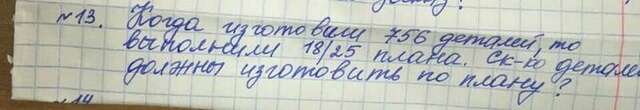 №13. Когда изготовили 756 деталей, то
выполнили 18/25 плана. Ск-ко детале
должны изготовить по плану?
№14